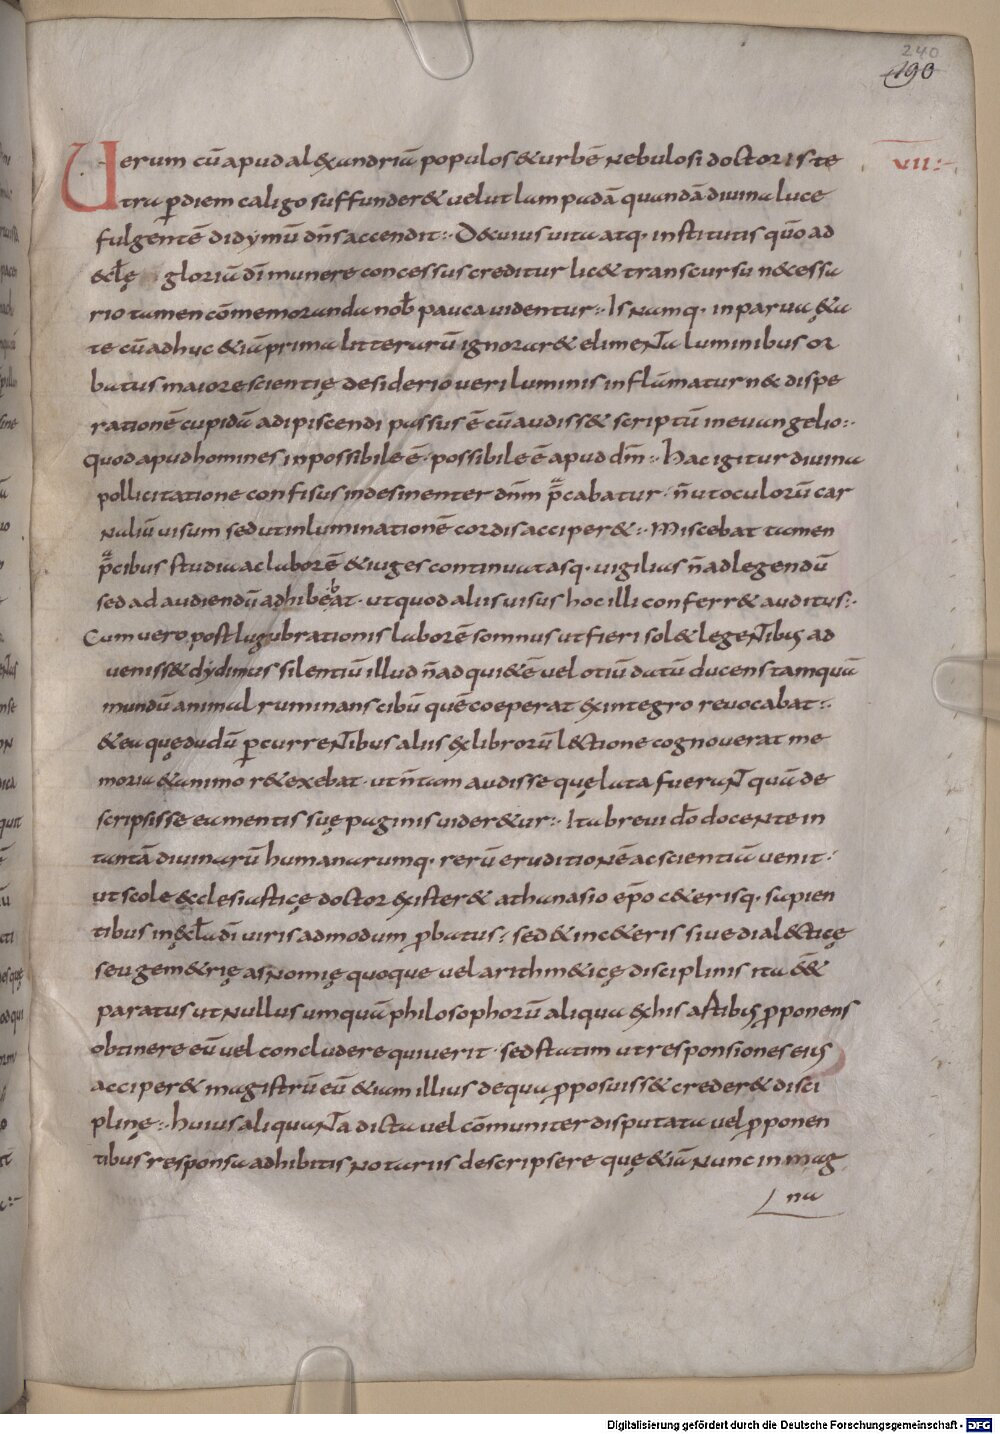 240
190
Uerum cū apud alexandriā populos & urbē nebulosi doctoris te
VII
tra p̱diem caligo suffunder& velut lampadā quandā divina luce
fulgentē didymū dn̄s accendit:· De cuius vita atq· institutis qm̄o ad
eccl̄ę gloriā dī munere concessus creditur lic& transcursu necessa
rio tamen cōmemoranda nob̄ pauca videntur:· Is namq· in parva ęta
te cū adhuc &iā prima litterarū ignorar& elimenta luminibus or
batus maiore scientię desiderio veri luminis inflāmatur n& dispe
rationē cupidā adipiscendi passus ē cū audiss& scriptū in evangelio:·
Quod apud homines inpossibile ē· possibile ē apud dm̄:· Hac igitur divina
pollicitatione confisus indesinenter dnm̄ p̄cabatur· n̄ ut oculorū car
naliū visum sed ut inluminationē cordis acciper&:· Miscebat tamen
p̄cibus studia ac laborē & iuges continuatasq· vigilias n̄ ad legendū
sed ad audiendū adhibebat· ut quod aliis visus hoc illi conferr& auditus:·
Cum vero post lugubrationis laborē somnus ut fieri sol& legentibus ad
veniss& dydimus silentiū illud n̄ ad qui&ē vel otiū datū ducens tamquā
mundū animal ruminans cibū quē coeperat ex integro revocabat:·
& ea quę dudū p̱currentibus aliis ex librorū lectione cognoverat me
moria & animo r&exebat· ut n̄ tam audisse quę lata fuerant quā de
scripsisse ea mentis suę paginis vider&ur:· Ita brevi dō docente in
tantā divinarū humanarumq· rerū eruditionē ac scientiā venit·
ut scole ecclesiasticę doctor exister& athanasio ep̄o c&erisq· sapien
tibus in ęcl̄a dī viris admodum p̱batus: sed & in c&eris sive dialecticę
seu gem&rię asnomię quoque vel arithm&icę disciplinis ita ē &
paratus ut nullus umquā philosophorū aliqua ex his astibus p̱ponens
obtinere eū vel concludere quiverit· sed statim ut responsiones eius
acciper& magistrū eū &iam illius de qua p̱posuiss& creder& disci
plinę:· huius aliquanta dicta vel cōmuniter disputata vel p̱ponen
tibus responsa adhibitis notariis descripsere quę &iā nunc in mag
na
Digitalisierung gefördert durch die Deutsche Forschungsgemeinschaft - DFG